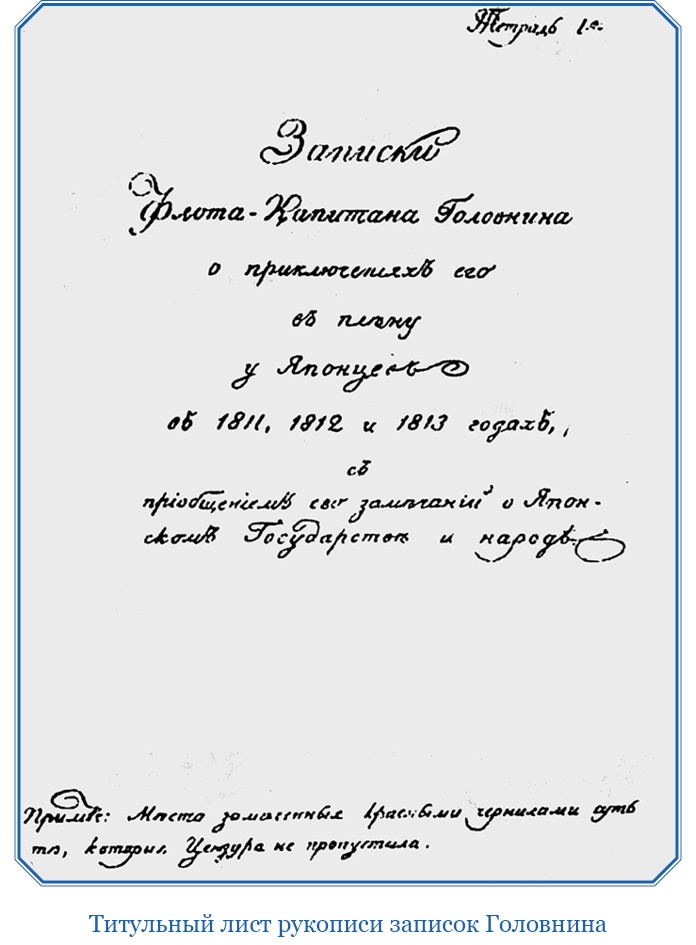 Тетрадь 1.я
Записки
Флота-Капитана Головнина
о приключенiяхъ его
въ плѣну
у Японцевъ
въ 1811, 1812 и 1813 годахъ,
съ
прiобщенiемъ его замѣчанiй о Япон-
скомъ Государствѣ и народѣ
Примѣч: Мѣста замаранныя красными чернилами суть
тѣ, которыя Цензура не пропустила.
Титульный лист рукописи записок Головнина